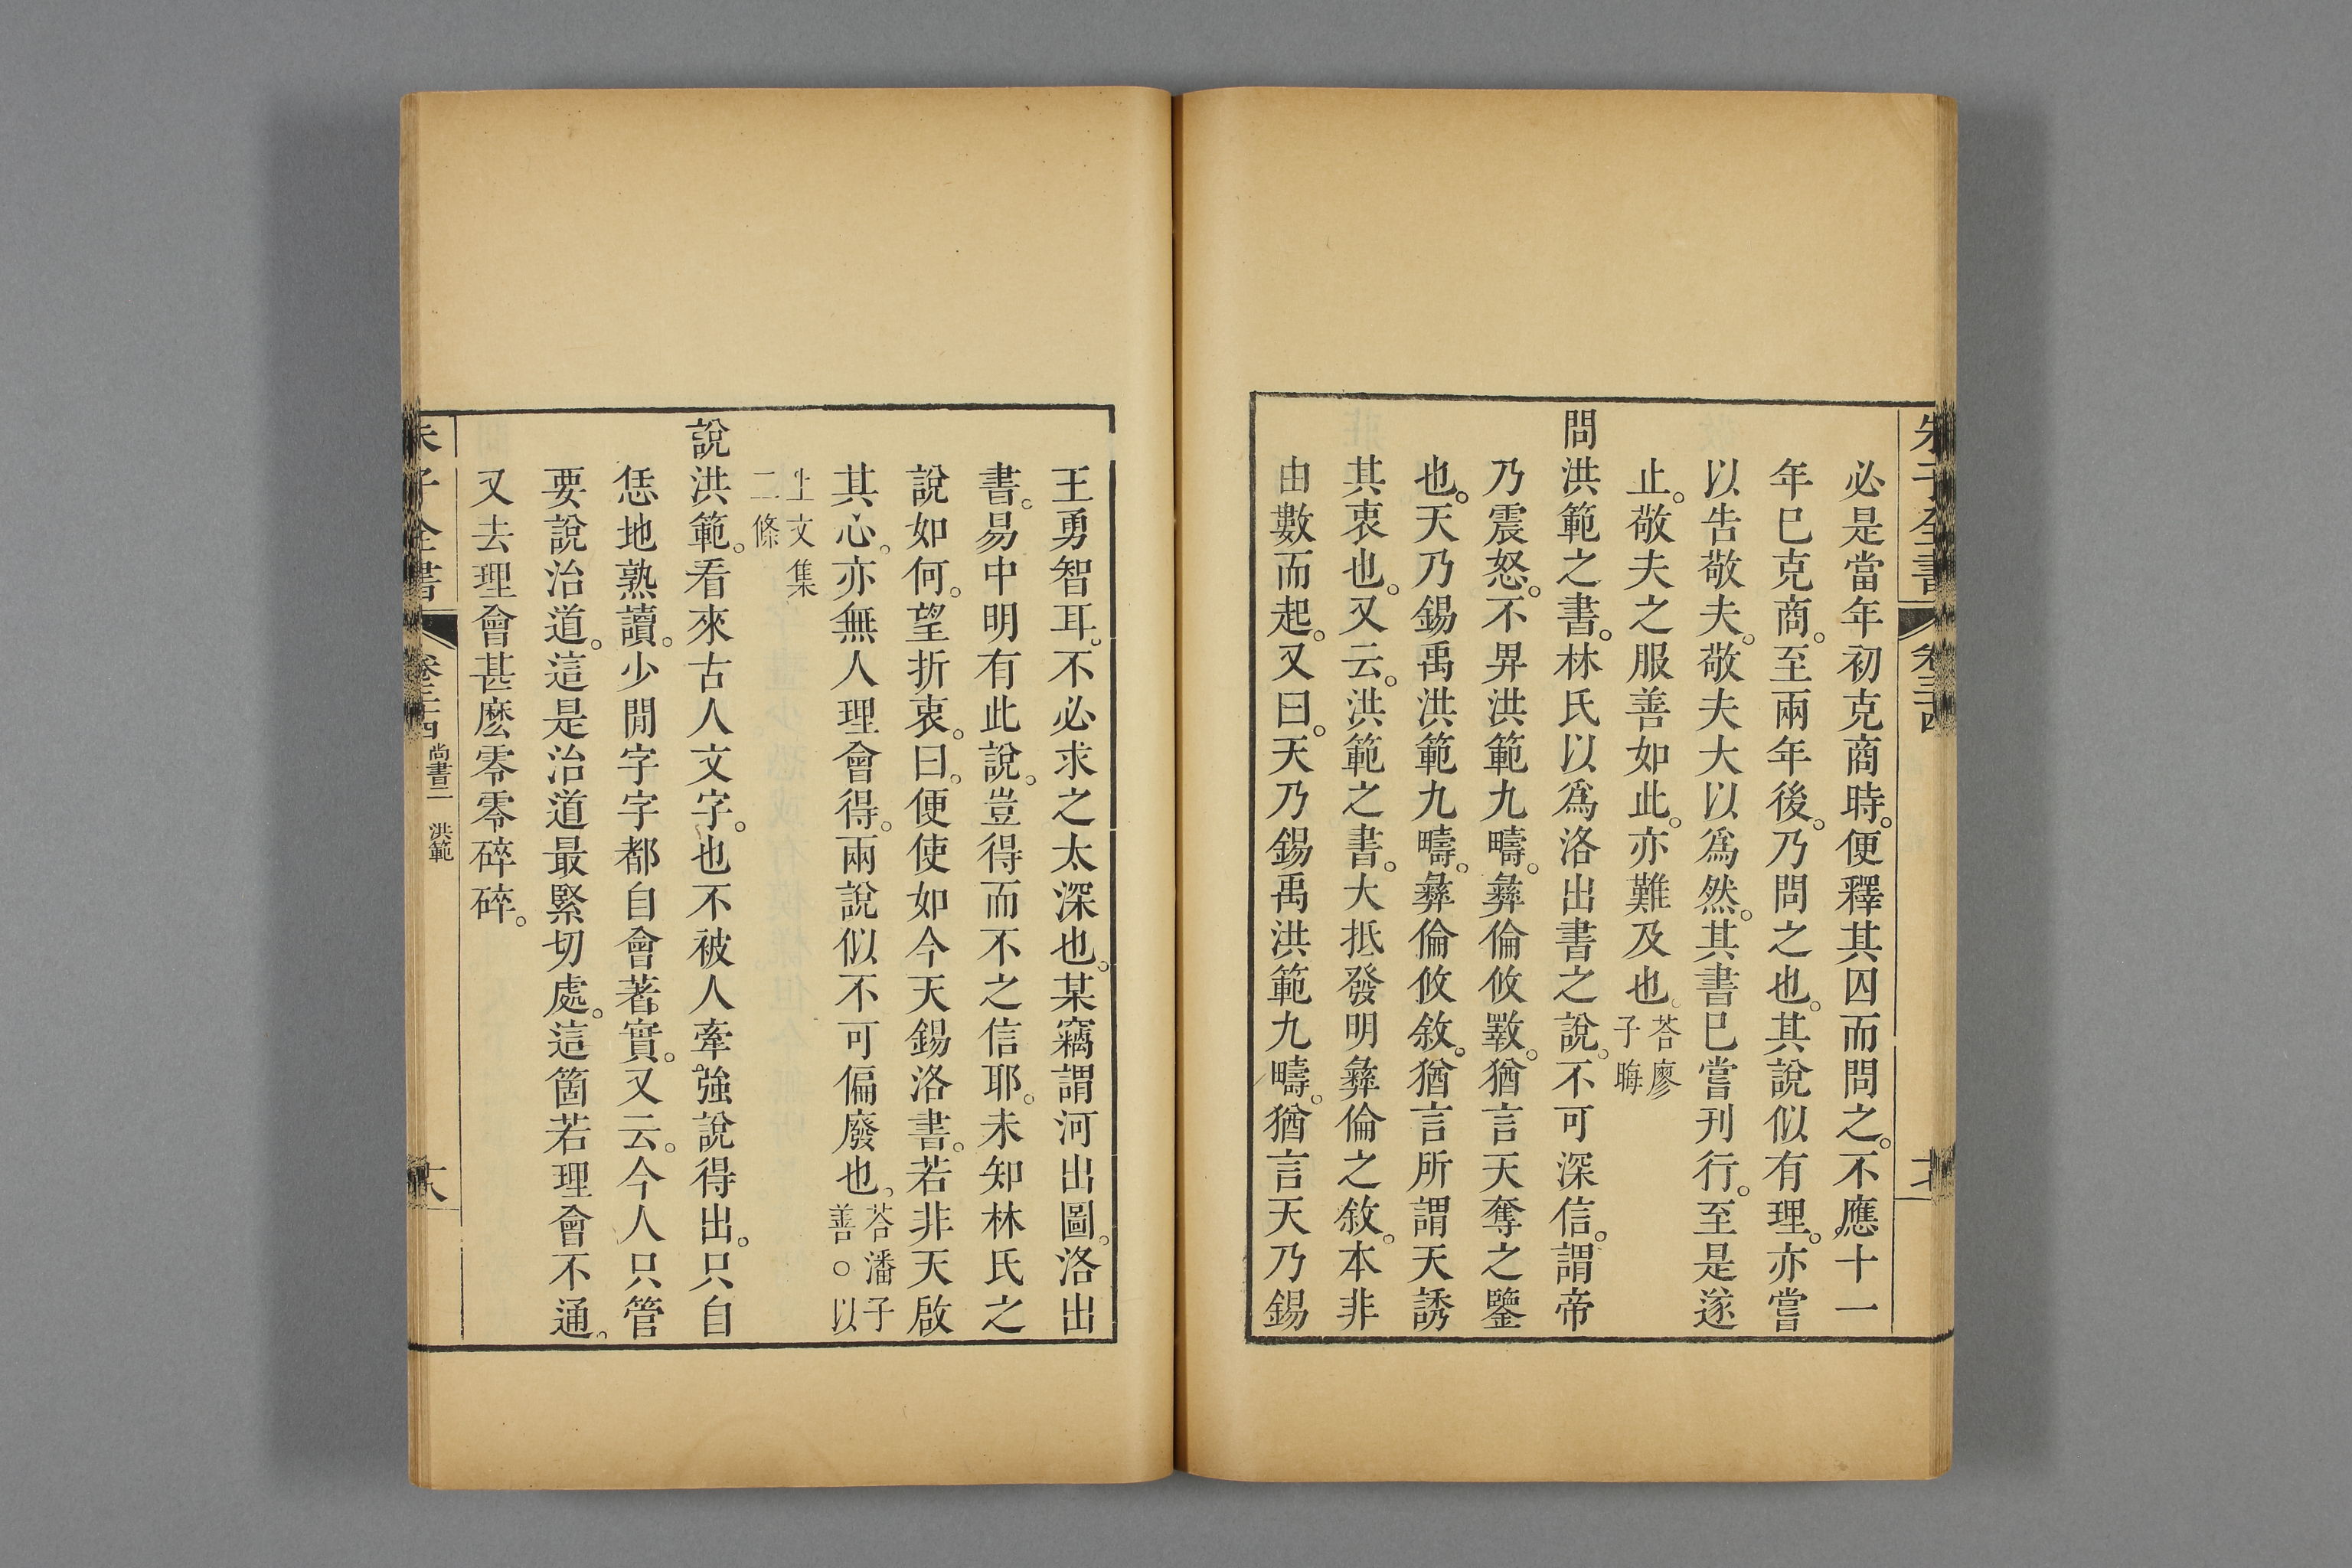 朱子全書 卷三十四
必是當年初克商時。便釋其囚而問之。不應十一
年巳克商。至兩年後。乃問之也。其說似有理。亦嘗
以告敬夫。敬夫大以爲然。其書巳嘗刊行。至是遂
止。敬夫之服善如此。亦難及也。荅廖子晦
問洪範之書。林氏以爲洛出書之說。不可深信。謂帝
乃震怒。不畀洪範九疇。彝倫攸斁。猶言天奪之鑒
也。天乃錫禹洪範九疇。彝倫攸敘。猶言所謂天誘
其衷也。又云。洪範之書。大抵發明彝倫之敘。本非
由數而起。又曰。天乃錫禹洪範九疇。猶言天乃錫
王勇智耳。不必求之太深也。某竊謂河出圖。洛出
書。易中明有此說。豈得而不之信耶。未知林氏之
說如何。望折衷。曰。便使如今天錫洛書。若非天啟
其心。亦無人理會得。兩說似不可偏廢也。荅潘子善。○以
上文集二條
說洪範。看來古人文字。也不被人牽強說得出。只自
恁地熟讀。少閒字字都自會著實。又云。今人只管
要說治道。這是治道最緊切處。這箇若理會不通。
又去理會甚麽零零碎碎。
朱子全書 卷三十四 尚書二 洪範 十八